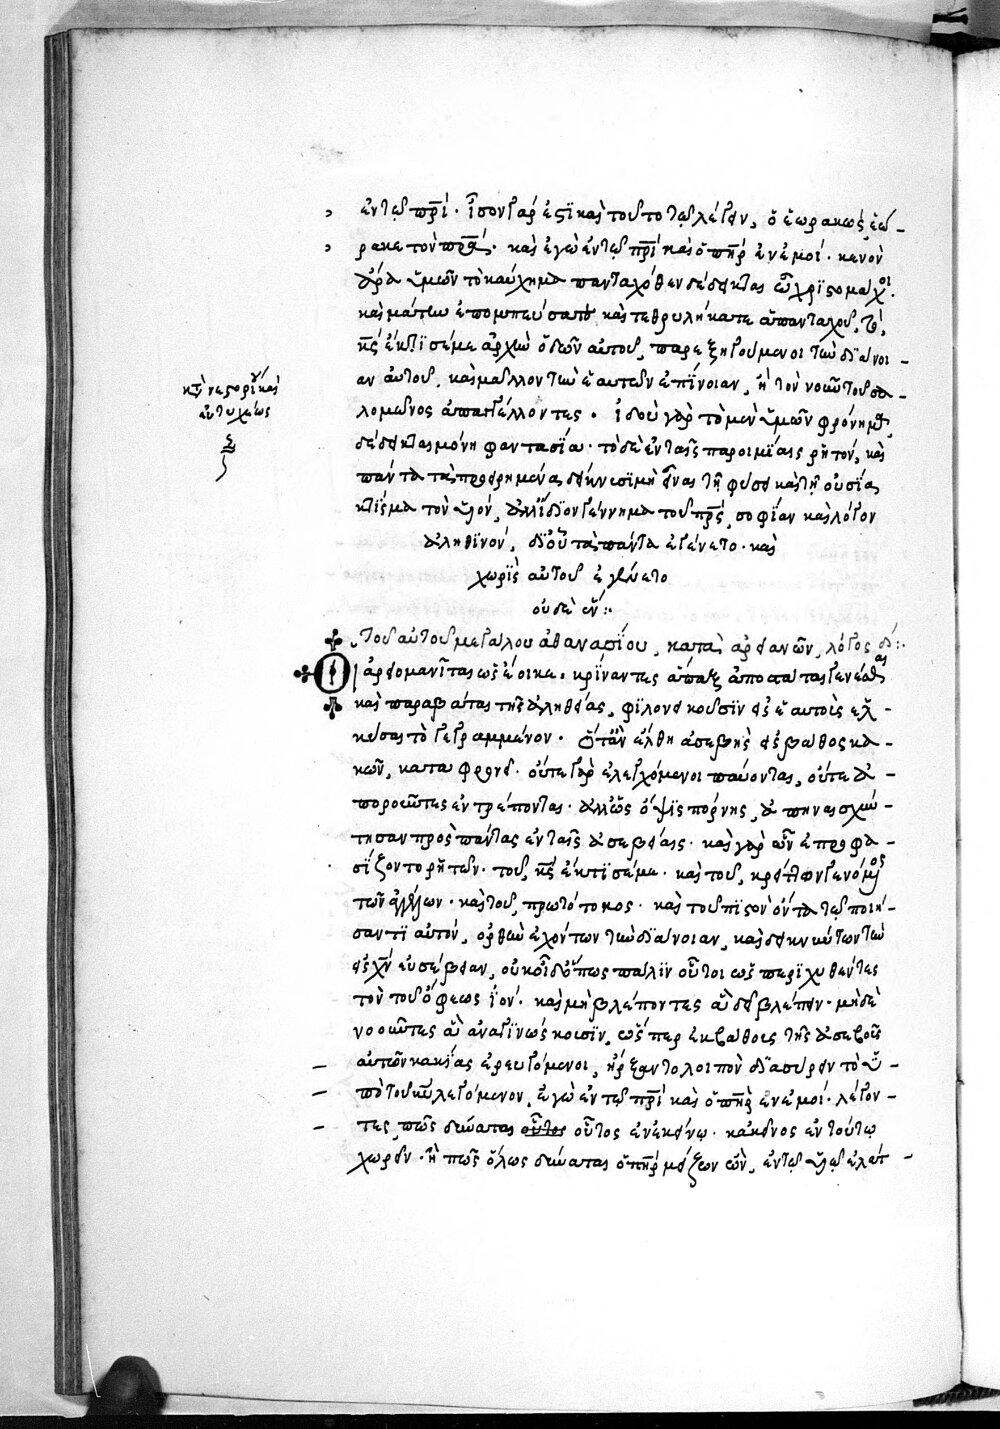 ἐν τῷ πρΐ· ἴσον γάρ ἐστϊ καὶ τοῦτο τῷ λέγειν, ὁ ἑωρακὼς ἐμὲ, ἑώ-
ρακε τὸν πρα· καὶ ἐγὼ ἐν τῷ πρΐ καὶ ὁ πηρ ἐν ἐμοί· κενὸν
ἄρα ὑμῶν τὸ καύχημα πανταχόθεν δέδεικται ὦ χρϊστομάχοι·
καὶ μάτην ἐπομπεύσατε καὶ τεθρυλήκατε ἁπανταχοῦ, τὸ,
κς ἔκτϊσέ με ἀρχὴν ὁδῶν αὐτοῦ, παρεξηγούμενοι τὴν δϊάνοι-
αν αὐτοῦ, καὶ μᾶλλον τὴν ἑαυτῶν ἐπίνοιαν, ἢ τὸν νοῦν τοῦ σο-
λομῶνος ἀπαγγέλλοντες· ἰδοὺ γὰρ τὸ μὲν ὑμῶν φρόνημα,
δέδεικται μόνη φαντασία· τὸ δὲ ἐν ταῖς παροιμίαις ρητόν, καὶ
πάντα τὰ προειρημένα, δείκνυσϊ μὴ εἶναι τῇ φύσει καὶ τῇ οὐσίᾳ
κτίσμα τὸν ὑϊόν, ἀλλ' ἴδϊον γέννημα τοῦ πρς, σοφίαν καὶ λόγον
ἀληθϊνόν, δϊ' οὗ τὰ πάντα ἐγένετο· καὶ
χωρὶς αὐτοῦ ἐγένετο
οὐδὲ ἕν:·
Τοῦ αὐτοῦ μεγάλου ἀθανασίου, κατὰ ἀρειανῶν, λόγος δ:·
Οἱ ἀρειομανῖται ὡς ἔοικε, κρίναντες ἅπαξ ἀποστάται γενέσθαι
καὶ παραβάται τῆς ἀληθείας, φϊλονεικοῦσϊν εἰς ἑαυτοὺς ἑλ-
κύσαι τὸ γεγραμμένον· ὅταν ἔλθη ἀσεβὴς εἰς βάθος κα-
κῶν, καταφρονεῖ· οὔτε γὰρ ἐλεγχόμενοι παύονται, οὔτε ἀ-
ποροῦντες ἐντρέπονται· ἀλλ' ὡς ὄψις πόρνης, ἀπηναισχύν-
τησαν πρὸς πάντας ἐν ταῖς ἀσεβείαις· καὶ γὰρ ὧν ἐπροφα-
σίζοντο ρητῶν· τοῦ, κς ἔκτϊσέ με· καὶ τοῦ, κρείττων γενόμενος
τῶν ἀγγέλων· καὶ τοῦ, πρωτότοκος· καὶ τοῦ πϊστὸν ὄντα τῷ ποιή-
σαντϊ αὐτόν, ὀρθὴν ἐχόντων τὴν δϊάνοιαν, καὶ δεικνύντων τὴν
εἰς χν εὐσέβειαν, οὐκ οἶδ' ὅπως πάλϊν οὗτοι ὥσπερ ϊχυθέντες
τὸν τοῦ ὄφεως ϊόν· καὶ μὴ βλέποντες ἃ δεῖ βλέπειν· μὴ δὲ
νοοῦντες ἃ ἀναγϊνώσκουσϊν, ὥσπερ ἐκ βάθους τῆς ἀσεβοῦς
αὐτῶν καρδίας ἐρευγόμενοι, ἤρξαντο λοιπὸν δϊασύρειν τὸ ὑ-
πὸ τοῦ κυ λεγόμενον, ἐγὼ ἐν τῷ πρΐ καὶ ὁ πηρ ἐν ἐμοί· λέγον-
τες, πῶς δύναται οὗτος οὗτος ἐν ἐκείνῳ· κἀκεῖνος ἐν τούτῳ
χωρεῖν· ἢ πῶς ὅλως δύναται ὁ πηρ μείζων ὢν, ἐν τῷ ὑϊῷ ἐλάτ-